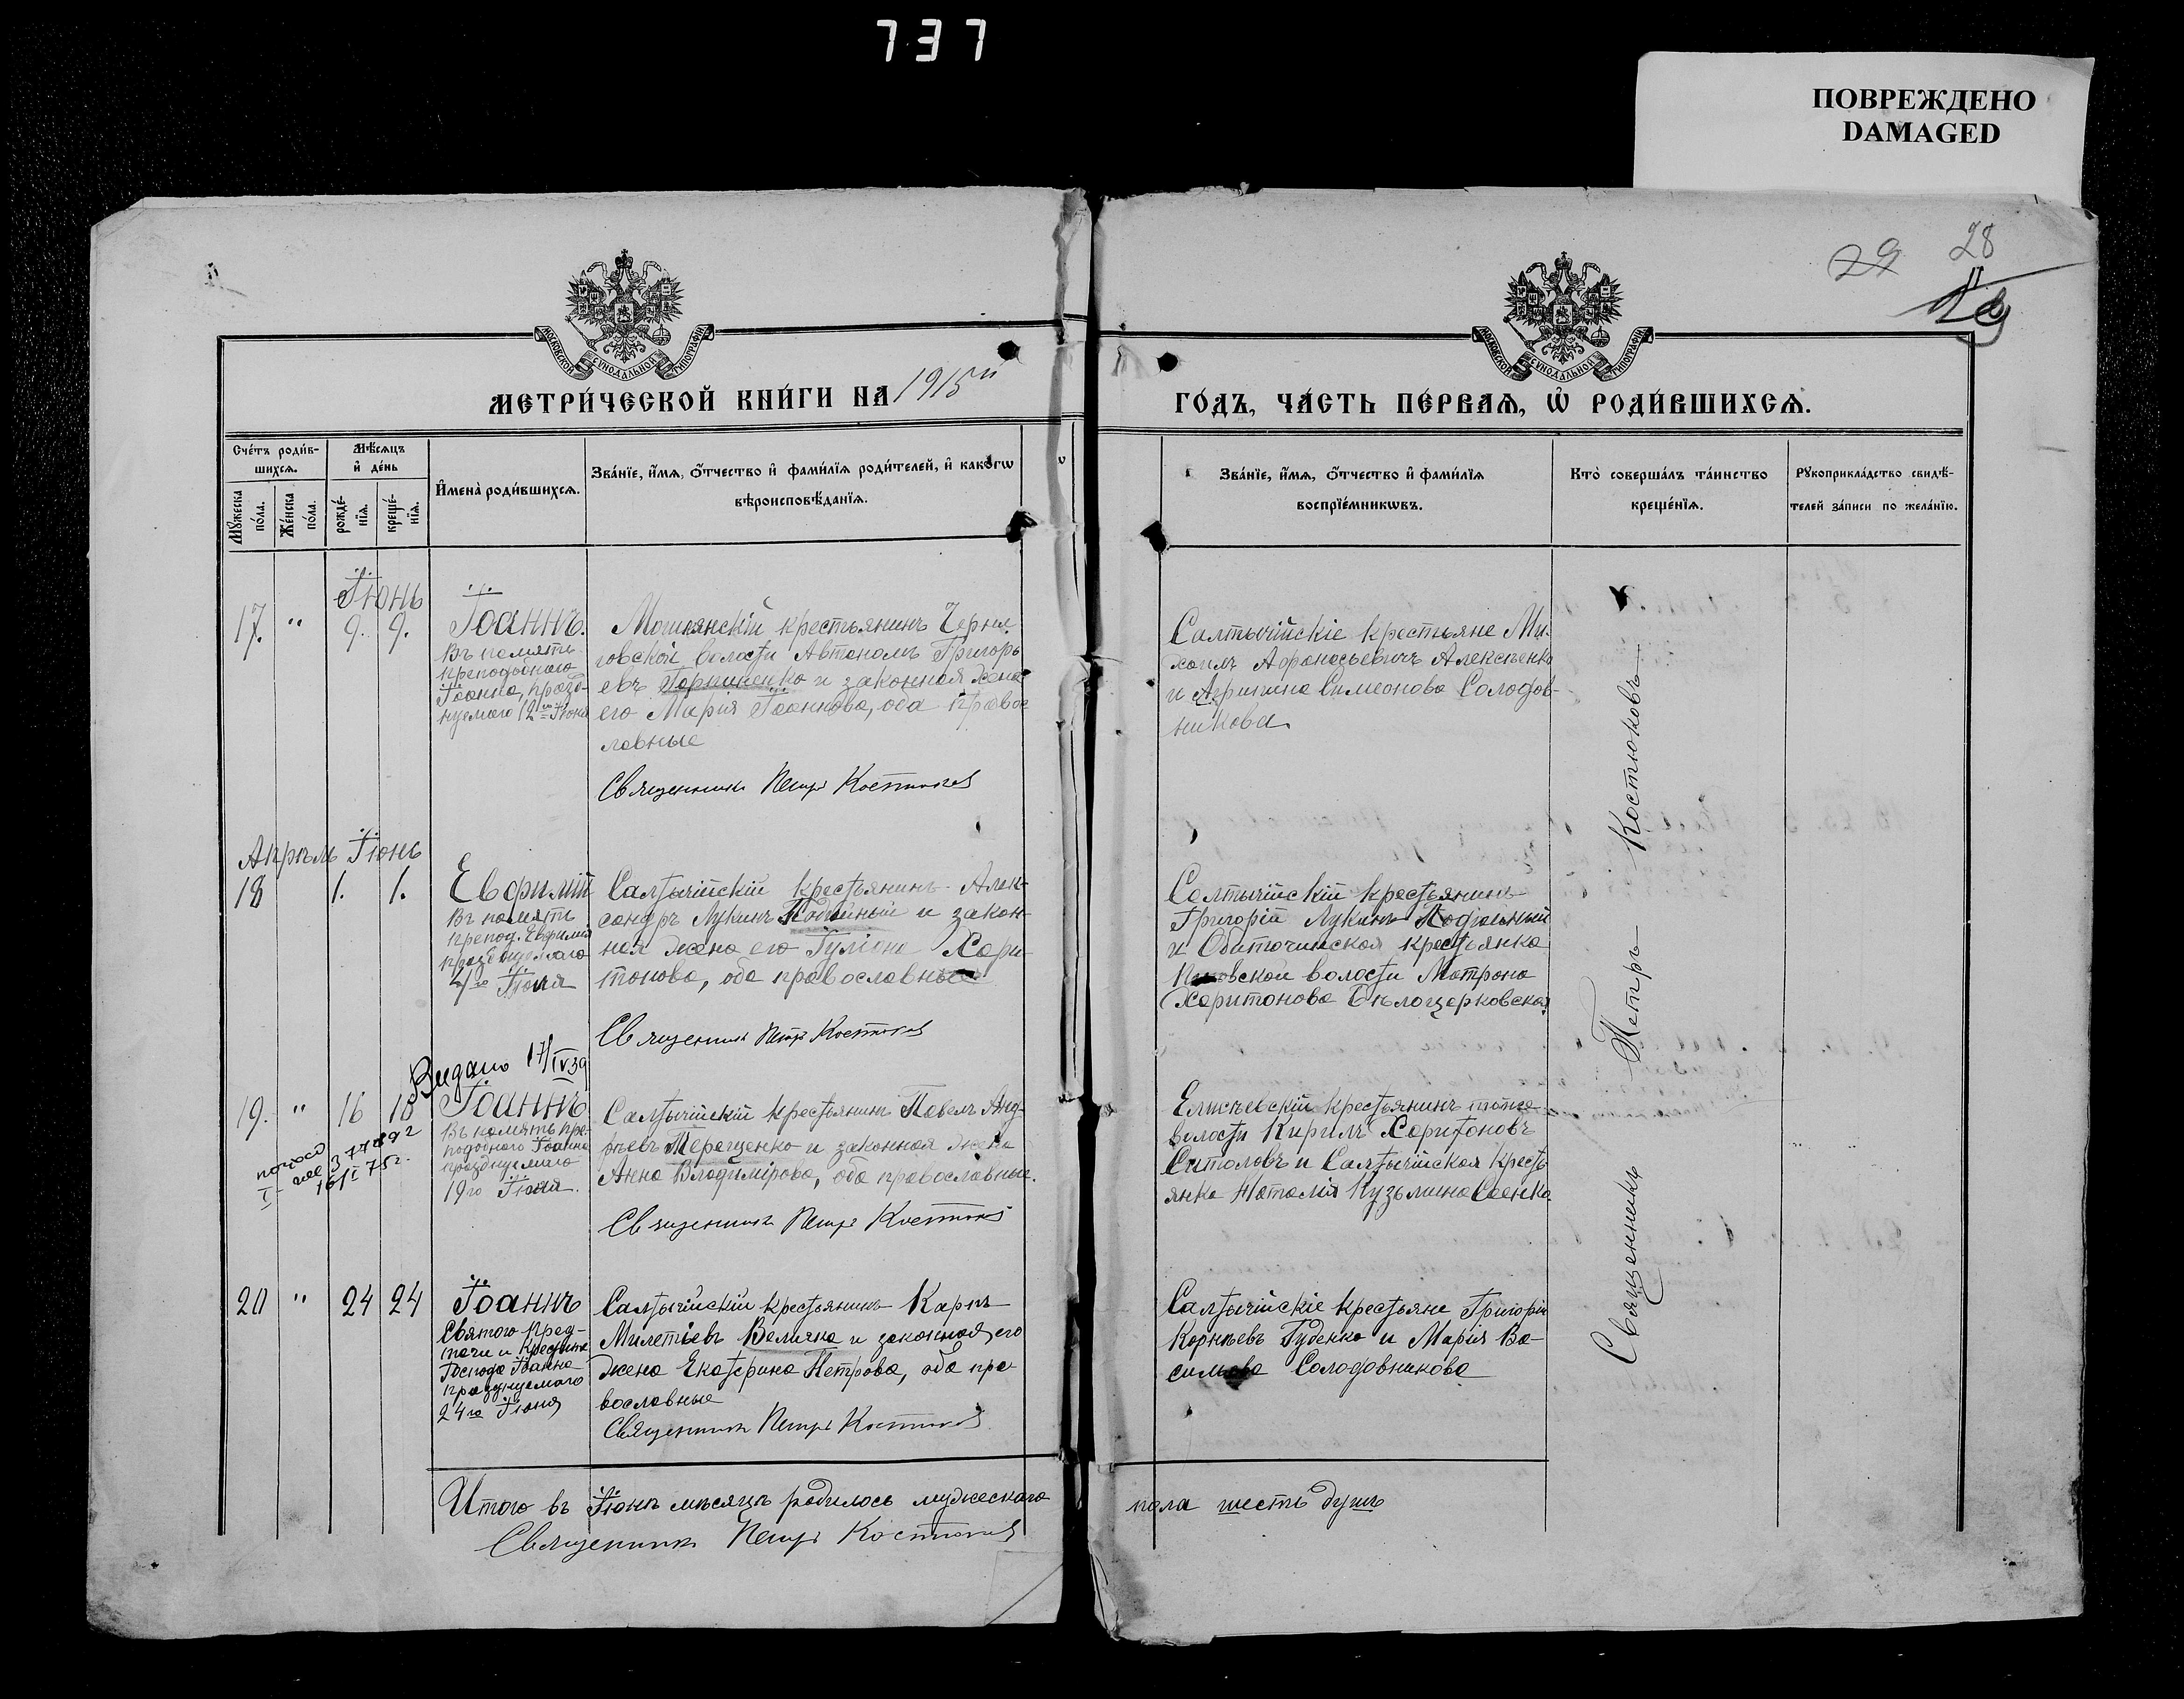 737
ПОВРЕЖДЕНО
DAMAGED
29 28
МОСКОВСКОЙ СѴНОДАЛЬНОЙ ТИПОГРАФІИ
МОСКОВСКОЙ СѴНОДАЛЬНОЙ ТИПОГРАФІИ
МЕТРИ́ЧЕСКОЙ КНИ́ГИ НА 1915й
ГО́ДЪ, ЧА́СТЬ ПЕ́РВАѦ, Ѡ РОДИ́ВШИХСѦ.
Сче́тъ роди́в-
шихсѧ.
Мꙋ́жеска по́ла.
Же́нска по́ла.
Мѣ́сѧцъ
и҆ де́нь
рожде́-
нїѧ.
креще́-
нїѧ.
И҆мена̀ роди́вшихсѧ.
Зва́нїе, и҆́мѧ, ѻ҆́тчество и҆ фами́лїѧ роди́телей, и҆ како́гѡ
вѣроисповѣ́данїѧ.
Зва́нїе, и҆́мѧ, ѻ҆́тчество и҆ фами́лїѧ
воспрїе́мникѡвъ.
Кто̀ соверша́лъ та́инство
креще́нїѧ.
Рꙋкоприкла́дство свидѣ́-
телей за́писи по жела́нїю.
Іюнь
17. " 9. 9.
Іоаннъ.
Въ память
преподобнаго
Іоанна, празд-
нуемаго 12го Іюня
Мошкянскій крестьянинъ Черни-
говской волости Автономъ Григорь
евъ и законная жена
его Марія Іоаннова, оба правос
лавные
Священникъ Петръ Костюковъ
Салтычійскіе крестьяне Ми-
хаилъ Афанасьевичъ Алексѣенко
и Агрипина Симеонова Солодов-
никова
Апрѣль Іюнь
18 1. 1.
Евфимій
Въ память
препод. Евфимія
празднуемаго
4го Іюля
Салтычійскій крестьянинъ Алек-
сандръ Лукинъ и закон-
ная жена его Іуліана Хари-
тонова, оба православные
Священникъ Петръ Костюковъ
Салтычійскій крестьянинъ
Григорій Лукинъ
и Обиточинская крестьянка
волости Матрона
Харитонова Бѣлоцерковская
Видано 17/IV 39
19. " 16 18
Іоаннъ
Въ память пре-
подобнаго Іоанна
празднуемаго
19го Іюня.
16/I 75г.
Салтычійскій крестьянинъ Павелъ Анд-
рѣевъ Терещенко и законная жена
Анна Владимірова, оба православные.
Священникъ Петръ Костюковъ
Елисѣевскій крестьянинъ тойже
волости Кириллъ Харитоновъ
Ситаловъ и Салтычійская кресть
янка Наталія Кузьмина Саенко
20 " 24 24
Іоаннъ
Святого Пред-
течи и Крестителя
Господа Іоанна
празднуемаго
24го Іюня
Салтычійскій крестьянинъ Карпъ
Милетіевъ Величко и законная его
жена Екатерина Петрова, оба пра-
вославные
Священникъ Петръ Костюковъ
Салтычійскіе крестьяне Григорій
Корнѣевъ Гуденко и Марія Ва-
сильева Солодовникова
Священникъ Петръ Костюковъ
Итого въ Іюнѣ мѣсяцѣ родилось мужескаго пола шесть душъ
Священникъ Петръ Костюковъ